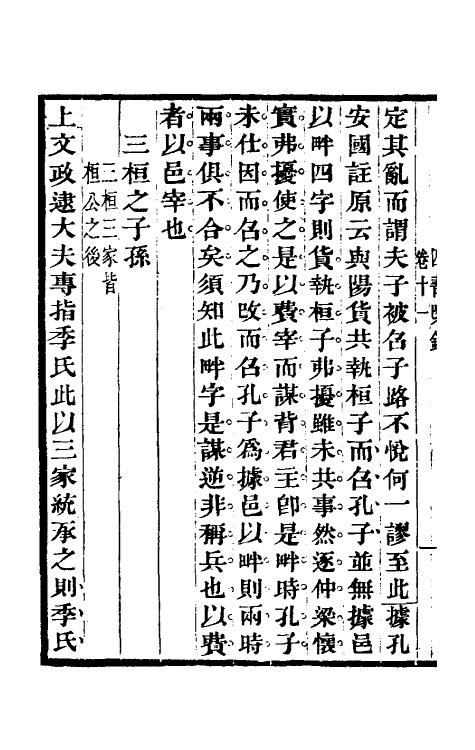 定其亂而謂夫子被召子路不悅何一謬至此據孔
安國註原云與陽貨共執桓子而召孔子並無據邑
以畔四字則貨執桓子弗擾雖未共事然逐仲梁懷
實弗擾使之是以費宰而謀背君主卽是畔時孔子
未仕因而召之乃改而召孔子爲據邑以畔則兩時
兩事俱不合矣須知此畔字是謀逆非稱兵也以費
者以邑宰也
三桓之子孫
三桓三家皆
桓公之後
上文政逮大夫專指季氏此以三家統承之則季氏